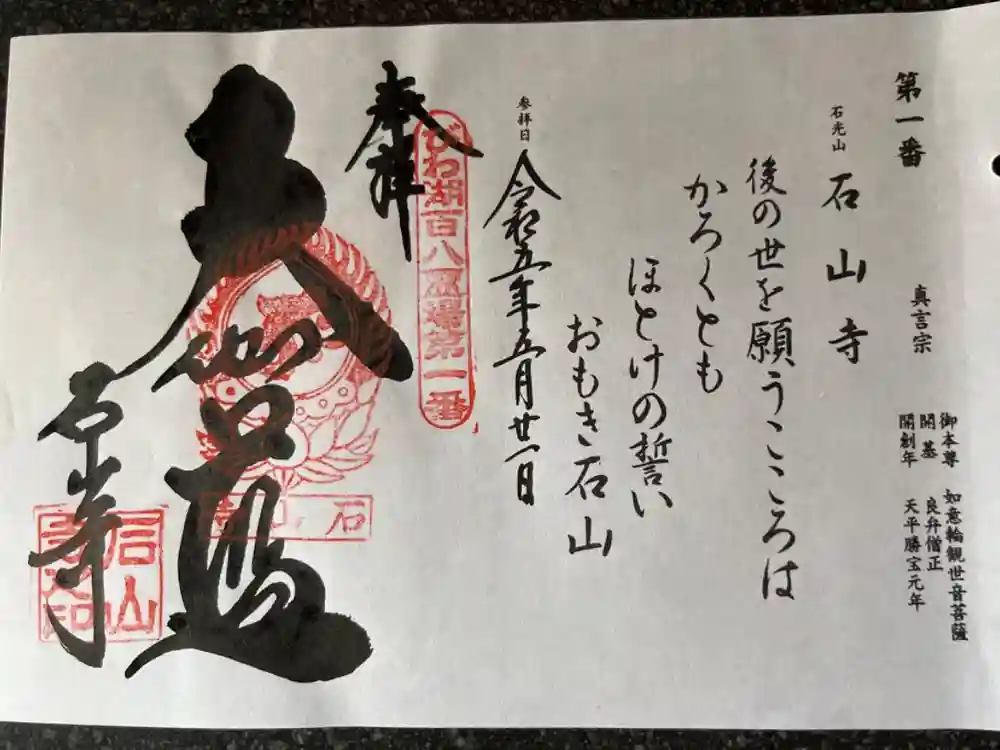 第一番
真言宗
御本尊 如意輪観世音菩薩
開基 良弁僧正
開創年 天平勝宝元年
石光山 石山寺
後の世を願うこころは
かろくとも
ほとけの誓い
おもき石山
参拝日 令和五年五月廿一日
奉拝
びわ湖百八霊場第一番
大伽藍
石山
石山寺